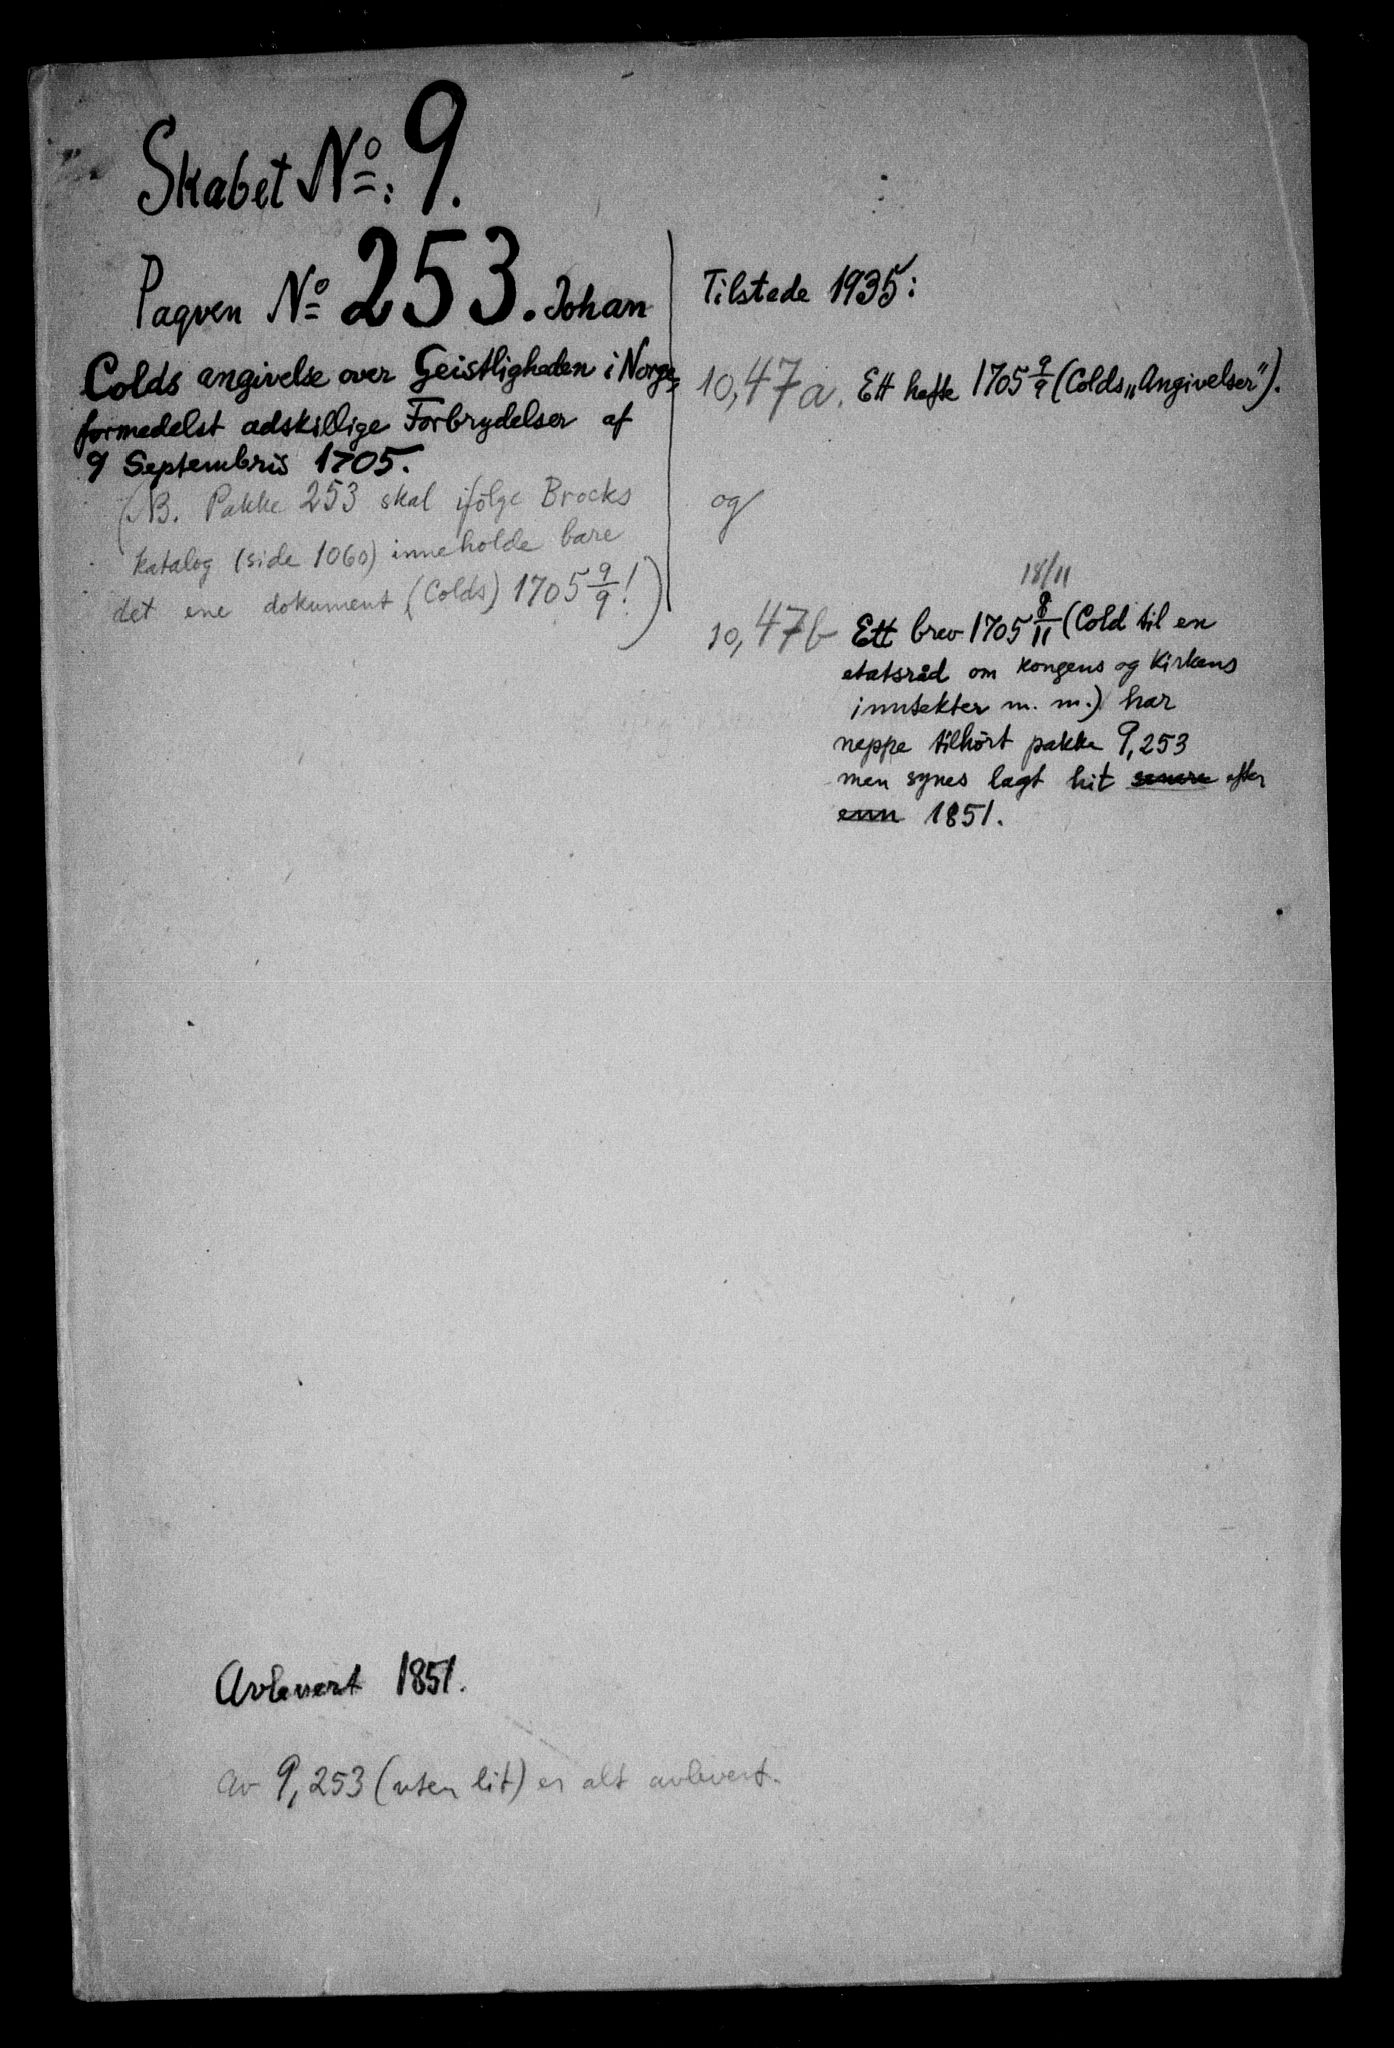 Skabet No: 9.
Paqven No 253. Johan
Colds angivelse over Geistligheden i Norge,
formedelst adskillige Forbrydelser af
9 Septembris 1705.
(NB. Pakke 253 skal ifölge Brocks
katalog (side 1060) inneholde bare
det ene dokument (Colds) 1705 9/9!)
Tilstede 1935:
10,47a. Ett hefte 1705 9/9 (Colds „Angivelser").
og
18/11
10,47b Ett brev 1705 8/11 (Cold til en
etatsråd om kongens og Kirkens
inntekter m. m.) har
neppe tilhört pakke 9,253
men synes lagt hit senere efter
enn 1851.
Avlevert 1851.
Av 9,253 (uten lit) er alt avlevert.